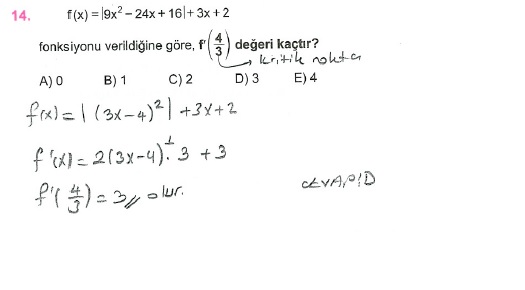 14. f(x) = |9x² – 24x + 16| + 3x + 2
fonksiyonu verildiğine göre, f'(4/3) değeri kaçtır?
→ kritik nokta
A) 0 B) 1 C) 2 D) 3 E) 4
f(x) = | (3x-4)² | + 3x + 2
f'(x) = 2(3x-4)¹. 3 + 3
f'(4/3) = 3// olur.
CEVAP: D